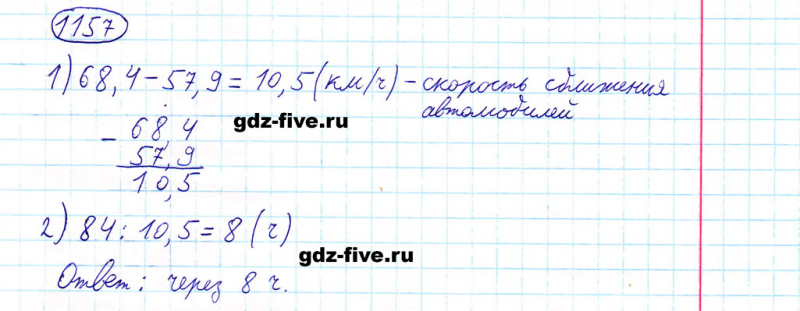 1157
1) 68,4 - 57,9 = 10,5 (км/ч) - скорость сближения
автомобилей
- 68,4
57,9
10,5
gdz-five.ru
2) 84 : 10,5 = 8 (ч)
gdz-five.ru
Ответ: через 8 ч.